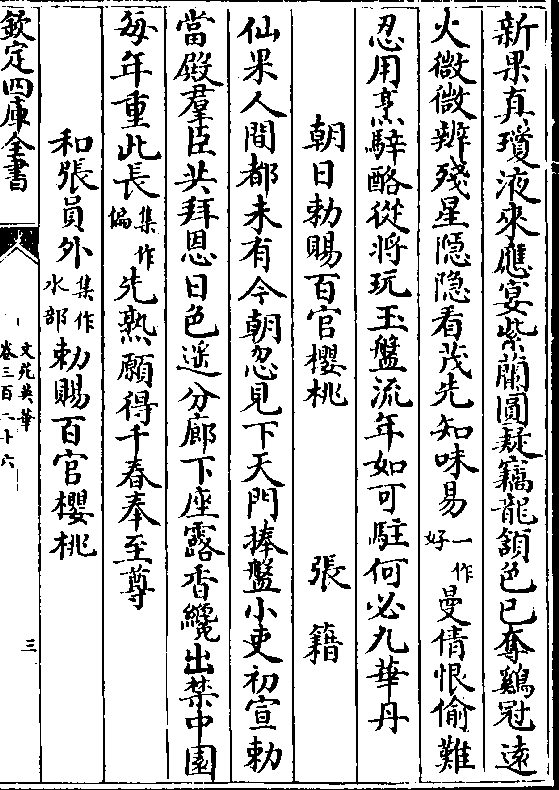 新果真瓊液來應宴紫蘭圓疑竊龍頷色已奪鷄冠遠
火微微辨殘星隱隱看茂先知味易一作好曼倩恨偷難
忍用烹騂酪從將玩玉盤流年如可駐何必九華丹
朝日勅賜百官櫻桃 張籍
仙果人間都未有今朝忽見下天門捧盤小吏初宣勅
當殿羣臣共拜恩日色遥分廊下座露香纔出禁中園
每年重此長集作偏先熟願得千春奉至尊
和張員外集作水部勅賜百官櫻桃
欽定四庫全書
文苑英華
卷三百二十六
三